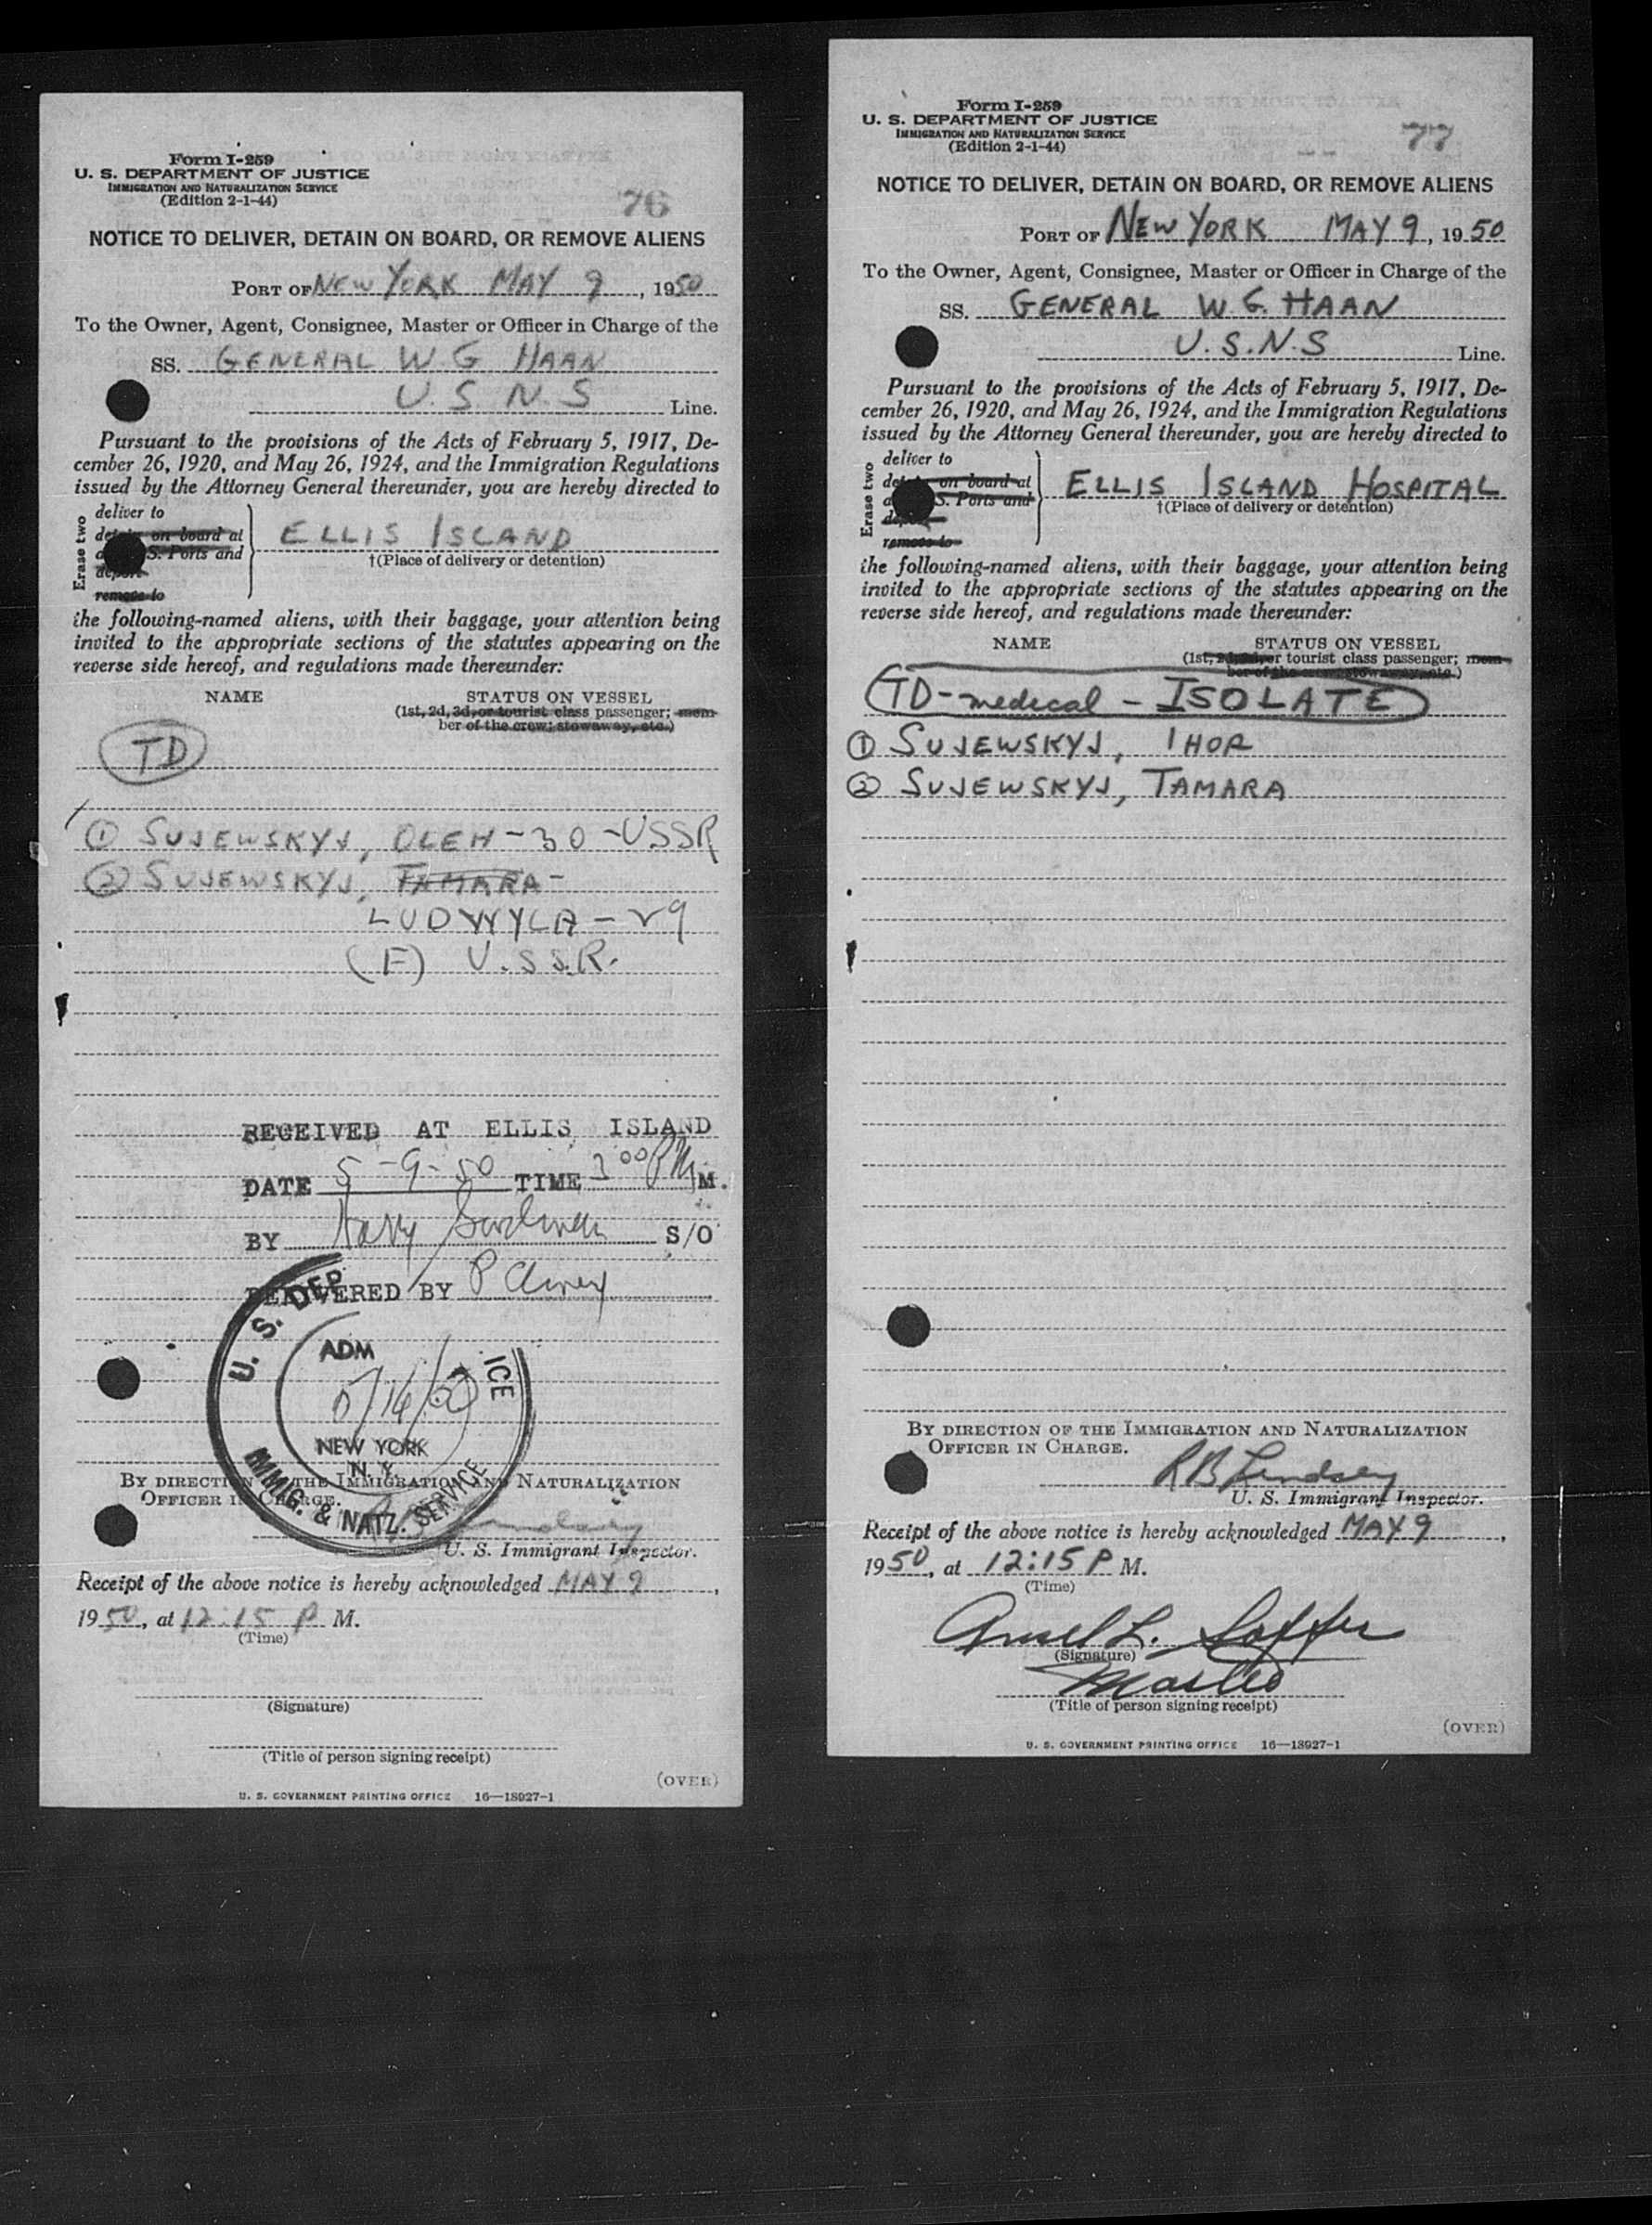 Form I-259
U. S. DEPARTMENT OF JUSTICE
IMMIGRATION AND NATURALIZATION SERVICE
(Edition 2-1-44)
76
NOTICE TO DELIVER, DETAIN ON BOARD, OR REMOVE ALIENS
PORT OF NEW YORK MAY 9, 1950
To the Owner, Agent, Consignee, Master or Officer in Charge of the
SS. GENERAL W G HAAN
U. S. N. S Line.
Pursuant to the provisions of the Acts of February 5, 1917, De-
cember 26, 1920, and May 26, 1924, and the Immigration Regulations
issued by the Attorney General thereunder, you are hereby directed to
Erase two
deliver to
on board at
S. Ports and
remove to
ELLIS ISLAND
†(Place of delivery or detention)
the following-named aliens, with their baggage, your attention being
invited to the appropriate sections of the statutes appearing on the
reverse side hereof, and regulations made thereunder:
NAME STATUS ON VESSEL
(1st, 2d, 3d, or tourist class passenger; mem-
ber of the crew; stowaway, etc.)
TD
① SUJEWSKYJ, OLEH - 30 - USSR
② SUJEWSKYJ, TAMARA -
LUDWYLA - 29
(F) U.S.S.R.
RECEIVED AT ELLIS ISLAND
DATE 5-9-50 TIME 3 00 PM M.
BY Harry S/O
DELIVERED BY P
U. S. DEP ICE
ADM
NEW YORK
N. Y.
IMMIG. & NATZ. SERVICE
BY DIRECTION THE IMMIGRATION AND NATURALIZATION
OFFICER IN CHARGE.
Lindsey
U. S. Immigrant Inspector.
Receipt of the above notice is hereby acknowledged MAY 9,
1950, at 12:15 P M.
(Time)
(Signature)
(Title of person signing receipt)
(OVER)
U. S. GOVERNMENT PRINTING OFFICE 16—18927-1
Form I-259
U. S. DEPARTMENT OF JUSTICE
IMMIGRATION AND NATURALIZATION SERVICE
(Edition 2-1-44)
77
NOTICE TO DELIVER, DETAIN ON BOARD, OR REMOVE ALIENS
PORT OF NEW YORK MAY 9, 1950
To the Owner, Agent, Consignee, Master or Officer in Charge of the
SS. GENERAL W. G. HAAN
U.S.N.S Line.
Pursuant to the provisions of the Acts of February 5, 1917, De-
cember 26, 1920, and May 26, 1924, and the Immigration Regulations
issued by the Attorney General thereunder, you are hereby directed to
Erase two
deliver to
on board at
S. Ports and
remove to
ELLIS ISLAND HOSPITAL
†(Place of delivery or detention)
the following-named aliens, with their baggage, your attention being
invited to the appropriate sections of the statutes appearing on the
reverse side hereof, and regulations made thereunder:
NAME STATUS ON VESSEL
(1st, 2d, 3d, or tourist class passenger; mem-
ber of the crew; stowaway, etc.)
TD - medical - ISOLATE
① SUJEWSKYJ, IHOR
② SUJEWSKYJ, TAMARA
BY DIRECTION OF THE IMMIGRATION AND NATURALIZATION
OFFICER IN CHARGE.
RB Lindsey
U. S. Immigrant Inspector.
Receipt of the above notice is hereby acknowledged MAY 9,
1950, at 12:15 P M.
(Time)
Ansel L.
(Signature)
Master
(Title of person signing receipt)
(OVER)
U. S. GOVERNMENT PRINTING OFFICE 16—18927-1